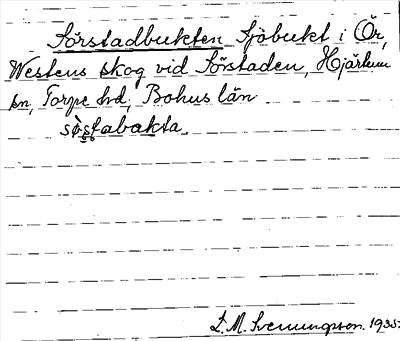 Sörstadbukten Sjöbukt i Ör,
Westens skog vid Sörstaden, Hjärtum
sn, Torpe hd, Bohus län
sö̀s̥tabakta
L. M. Svenungsson. 1935.